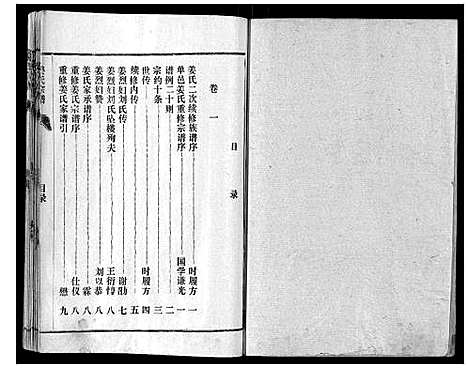 目录
卷一
姜氏二次续修族谱序 时履方 一
单邑姜氏重修宗谱序 国学谦光 一
谱例二十则 二
宗约十条 三
世传 时履方 四
续修内传 五
姜烈妇刘氏传 谢肋 七
姜烈妇刘氏坠楼殉夫 王衍情 八
姜烈妇赞 刘以恭 八
姜氏家承谱序 霖 八
重修姜氏宗谱序 仕仪 八
重修姜氏家谱引 懋 九
目录